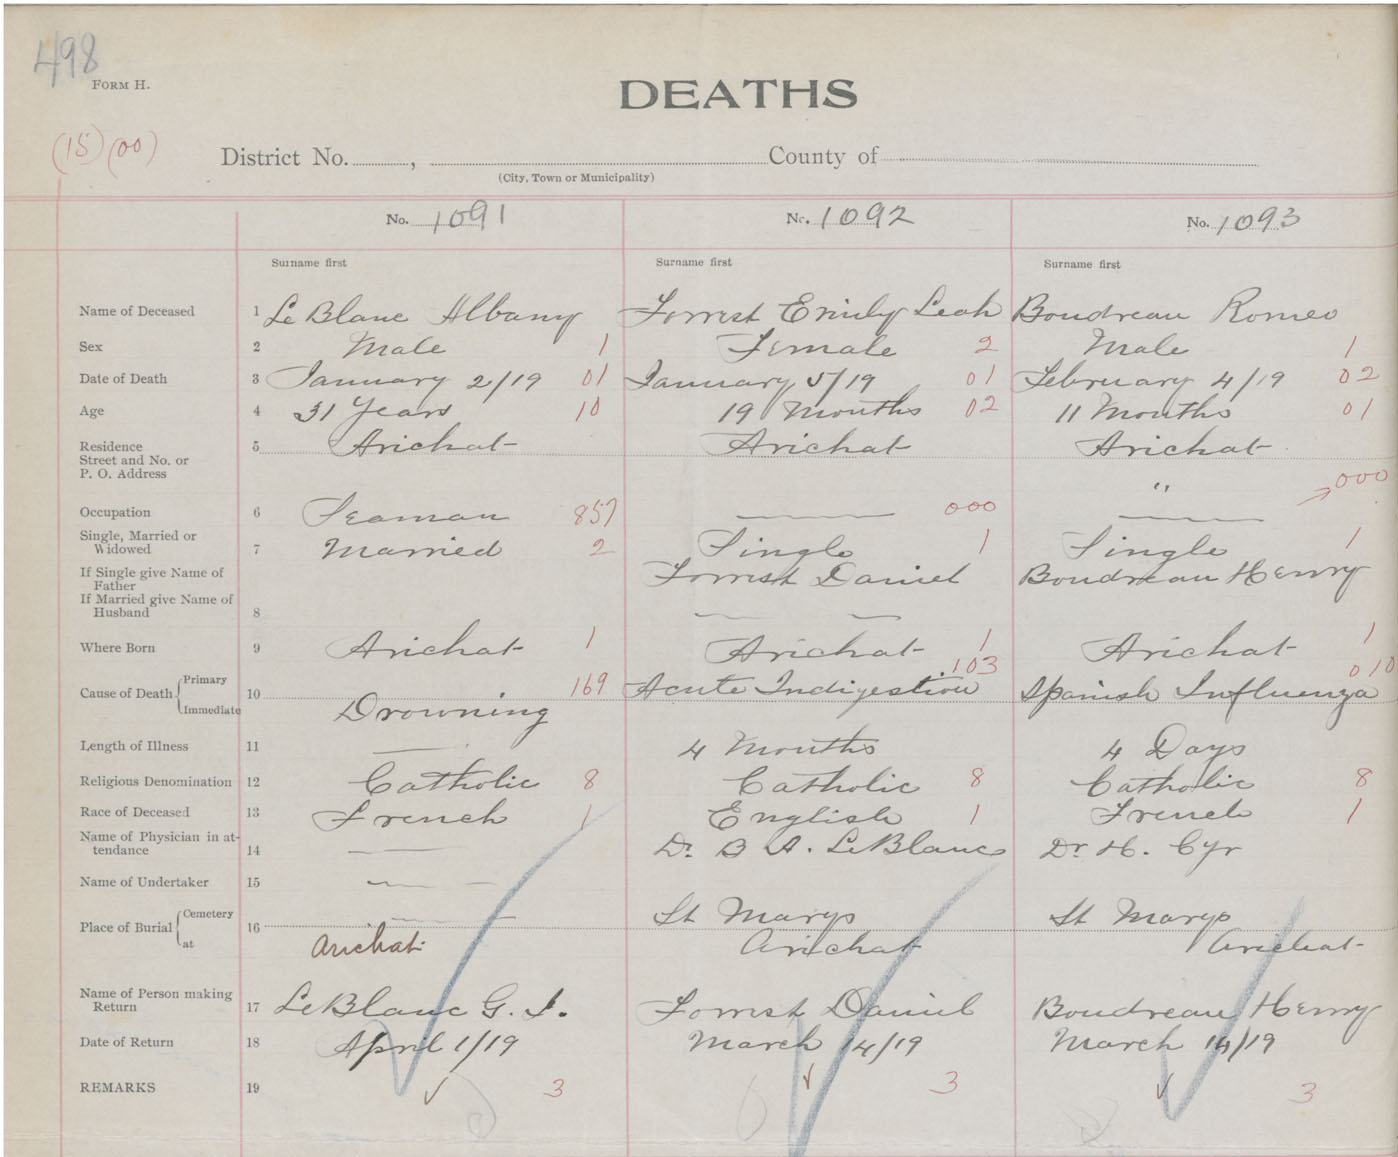 498
FORM H.
DEATHS
(15) (00)
District No. , County of
(City, Town or Municipality)
No. 1091 No. 1092 No. 1093
Surname first Surname first Surname first
Name of Deceased 1 Le Blanc Albany Forrest Emily Leah Boudreau Romeo
Sex 2 Male 1 Female 2 Male 1
Date of Death 3 January 2/19 01 January 5/19 01 February 4/19 02
Age 4 31 Years 10 19 Months 02 11 Months 01
Residence 5 Arichat Arichat Arichat
Street and No. or
P. O. Address " 000
Occupation 6 Seaman 857 000
Single, Married or
Widowed 7 Married 2 Single 1 Single 1
If Single give Name of
Father Forrest Daniel Boudreau Henry
If Married give Name of
Husband 8
Where Born 9 Arichat 1 Arichat 1 Arichat 1
Cause of Death Primary 10 169 Acute Indigestion 103 Spanish Influenza 010
Immediate Drowning
Length of Illness 11 4 Months 4 Days
Religious Denomination 12 Catholic 8 Catholic 8 Catholic 8
Race of Deceased 13 French 1 English 1 French 1
Name of Physician in at-
tendance 14 Dr. B A. LeBlanc Dr H. Cyr
Name of Undertaker 15
Place of Burial Cemetery 16 St Marys St Marys
at Arichat Arichat Arichat
Name of Person making
Return 17 LeBlanc G. I. Forrest Daniel Boudreau Henry
Date of Return 18 April 1/19 March 14/19 March 14/19
REMARKS 19 3 3 3